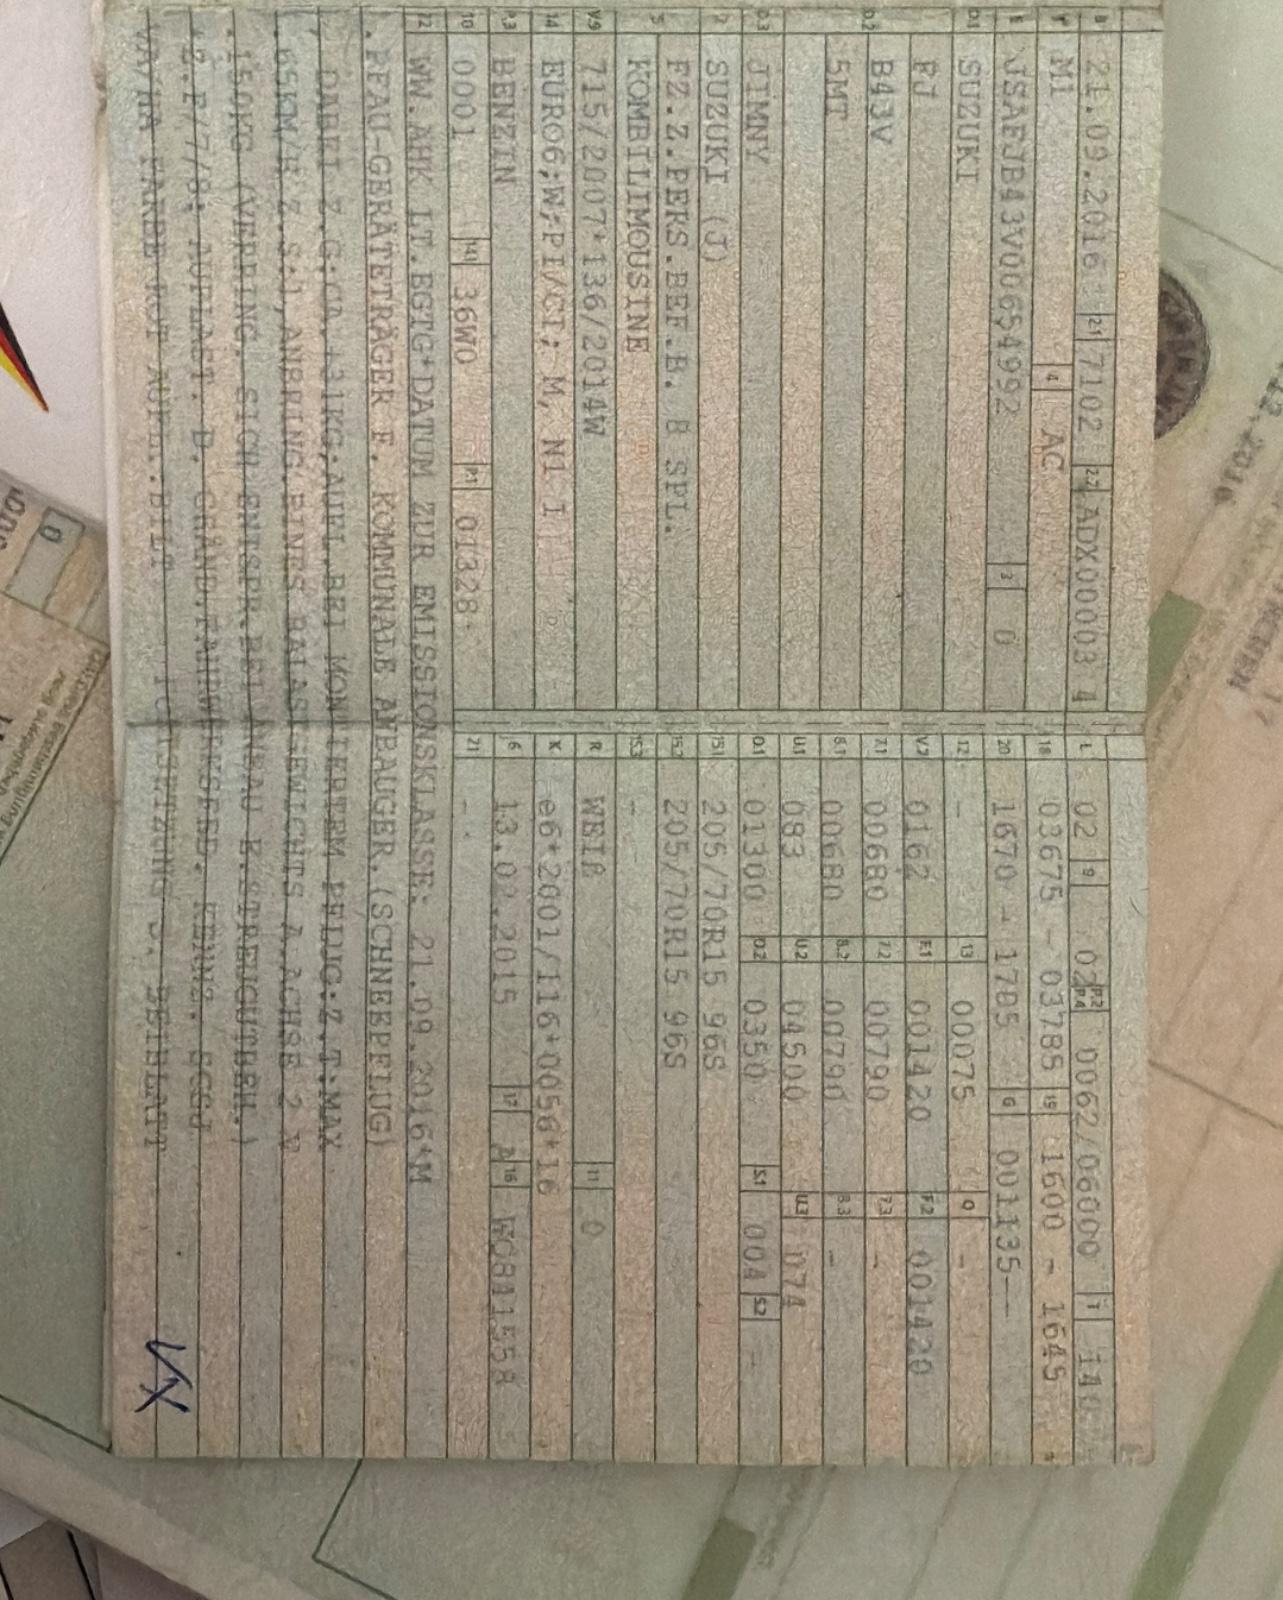 B 21.09.2016 2.1 7102 2.2 ADX000034
J M1 4 AC
E JSAFJB43V00654992 3 0
D.1 SUZUKI
FJ
D.2 B43V
5MT
D.3 JIMNY
2 SUZUKI (J)
5 FZ.Z.PERS.BEF.B. 8 SPL.
KOMBILIMOUSINE
V.9 715/2007*136/2014W
14 EURO6;W;PI/CI; M, N1 I
P.3 BENZIN
10 0001 14.1 36W0 P.1 01328
L 02 9 02 P.2 P.4 0062/06000 T 140
18 03675 - 03785 19 1600 - 1645
20 1670 - 1785 G 001135-
12 - 13 00075 Q -
V.7 0162 F.1 001420 F.2 001420
7.1 00680 7.2 00790 7.3 -
8.1 00680 8.2 00790 8.3 -
U.1 083 U.2 04500 U.3 074
O.1 01300 O.2 0350 S.1 004 S.2 -
15.1 205/70R15 96S
15.2 205/70R15 96S
15.3 -
R WEIß 11 0
K e6*2001/116*0056*16
6 13.02.2015 17 16
21 -
22 WW.AHK LT.EGTG*DATUM ZUR EMISSIONSKLASSE: 21.09.2016*M
.PFAU-GERÄTETRÄGER F. KOMMUNALE ANBAUGER.(SCHNEEPFLUG)
DABEI Z.G:CA.+31KG;AUFL.BEI MONTIERTEM PFLUG:Z.T.MAX
65KM/H Z.S:1,ANBRING.EINES BALASTGEWICHTS A.ACHSE 2 V
150KG (VERRING. SICH ENTSPR.BEI ANBAU E.STREUGUTBEH.)